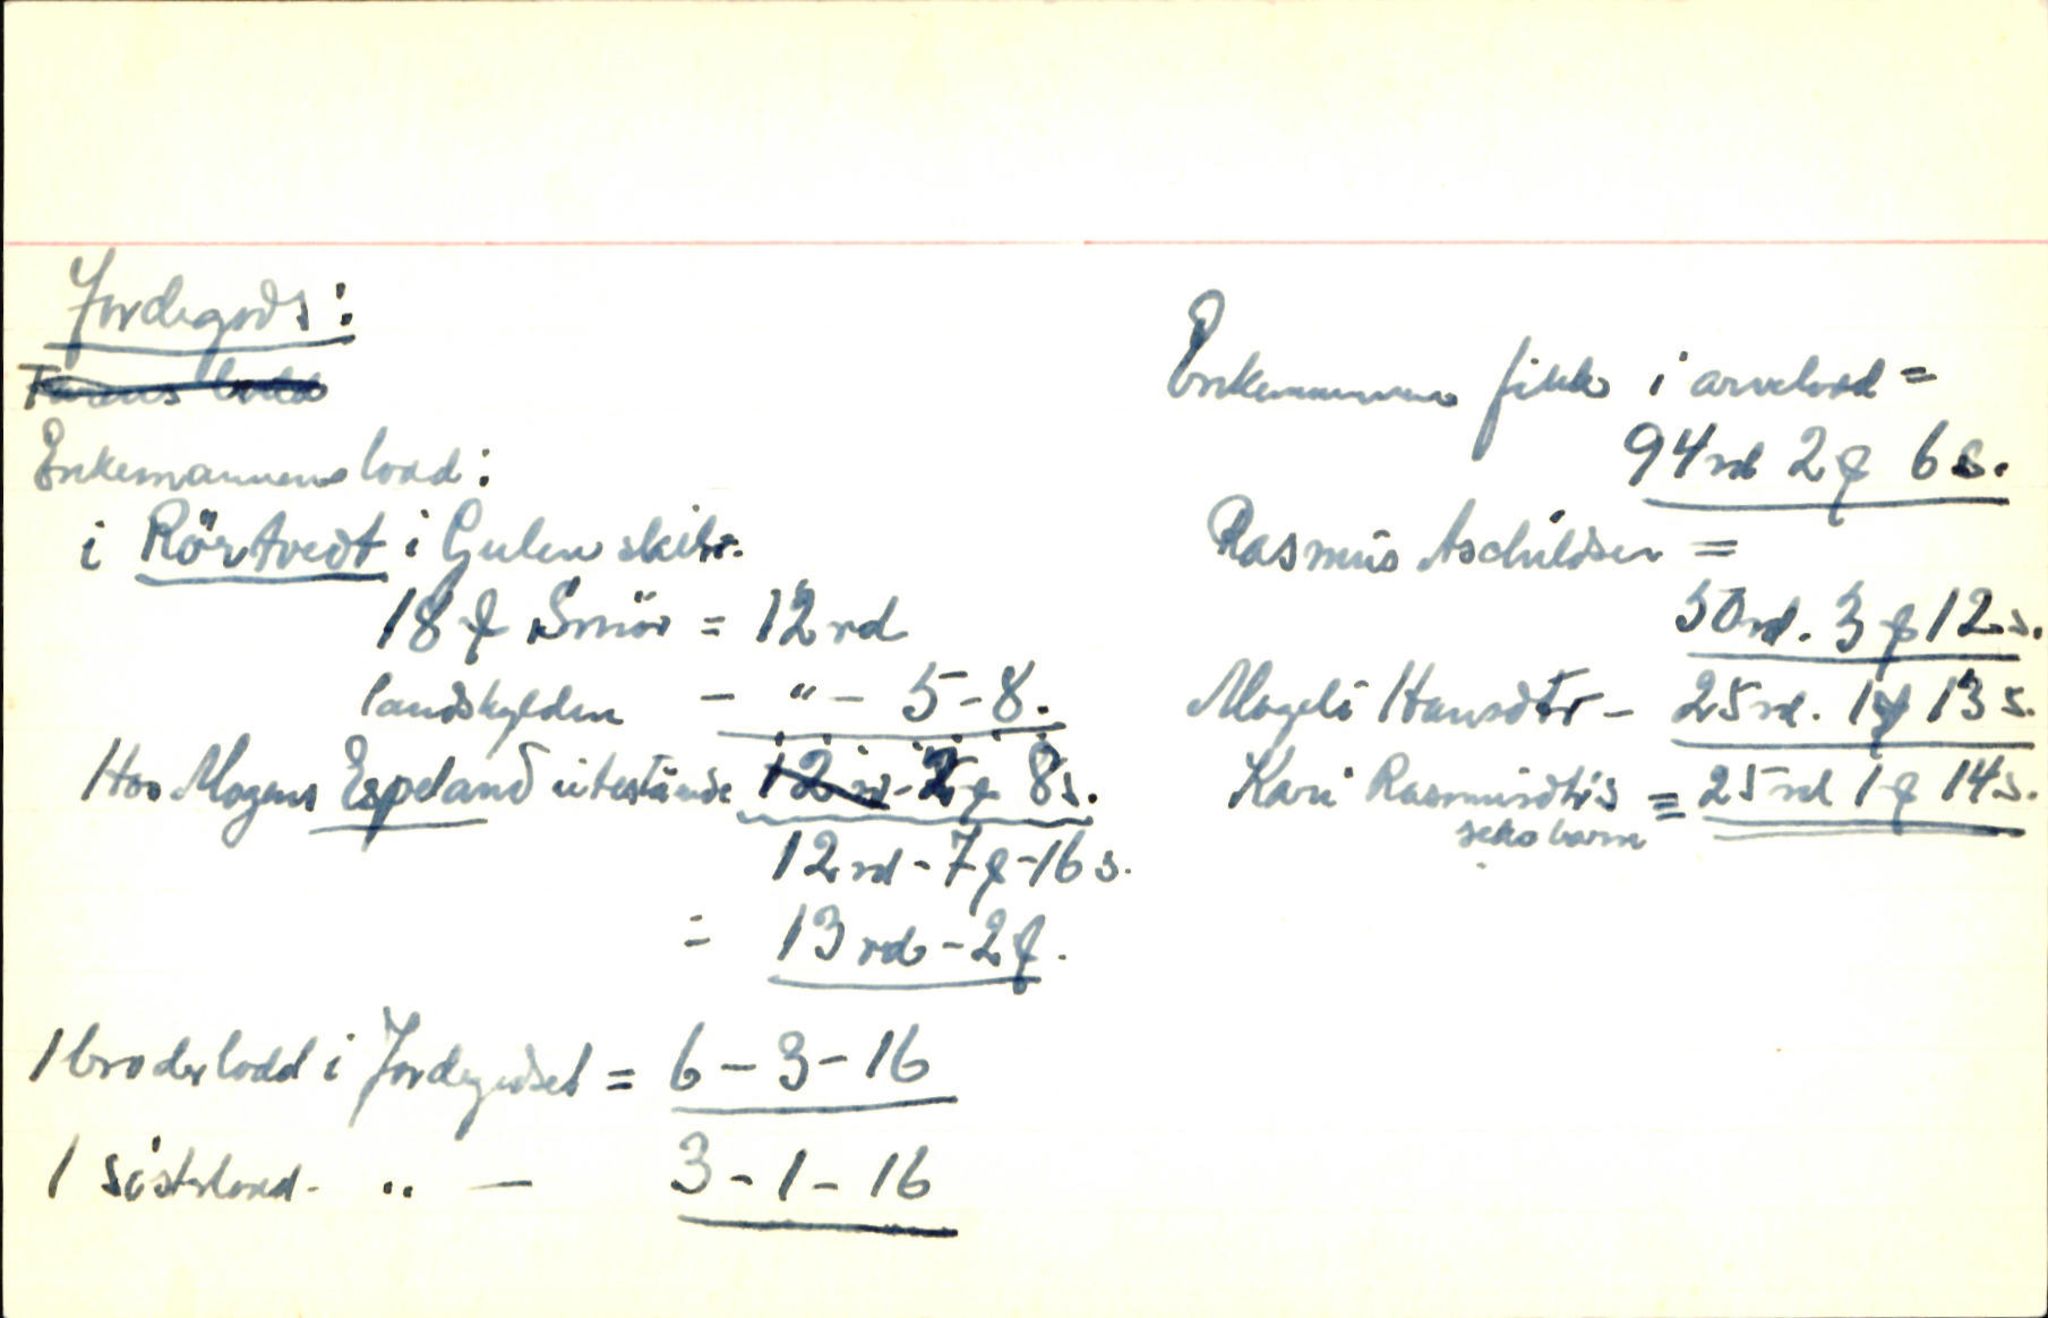 Jordegods:
Enkemannens lodd:
i Rörtvedt i Gulen skibr.
18 ₰ Smör = 12 rd
landskylden - " - 5 - 8.
Hos Mogens Espeland utestående 12 rd - 2 ₰ 8 s.
12 rd - 7 ₰ - 16 s.
= 13 rd - 2 ₰.
1 broderlodd i Jordegodset = 6 - 3 - 16
1 sösterlodd - " - 3 - 1 - 16
Enkemannen fikk i arvelodd =
94 rd 2 ₰ 6 s.
Rasmus Aschildsen =
50 rd. 3 ₰ 12 s.
Mageli Hansdtr - 25 rd. 1 ₰ 13 s.
Kari Rasmusdtrs = 25 rd 1 ₰ 14 s.
seks barn